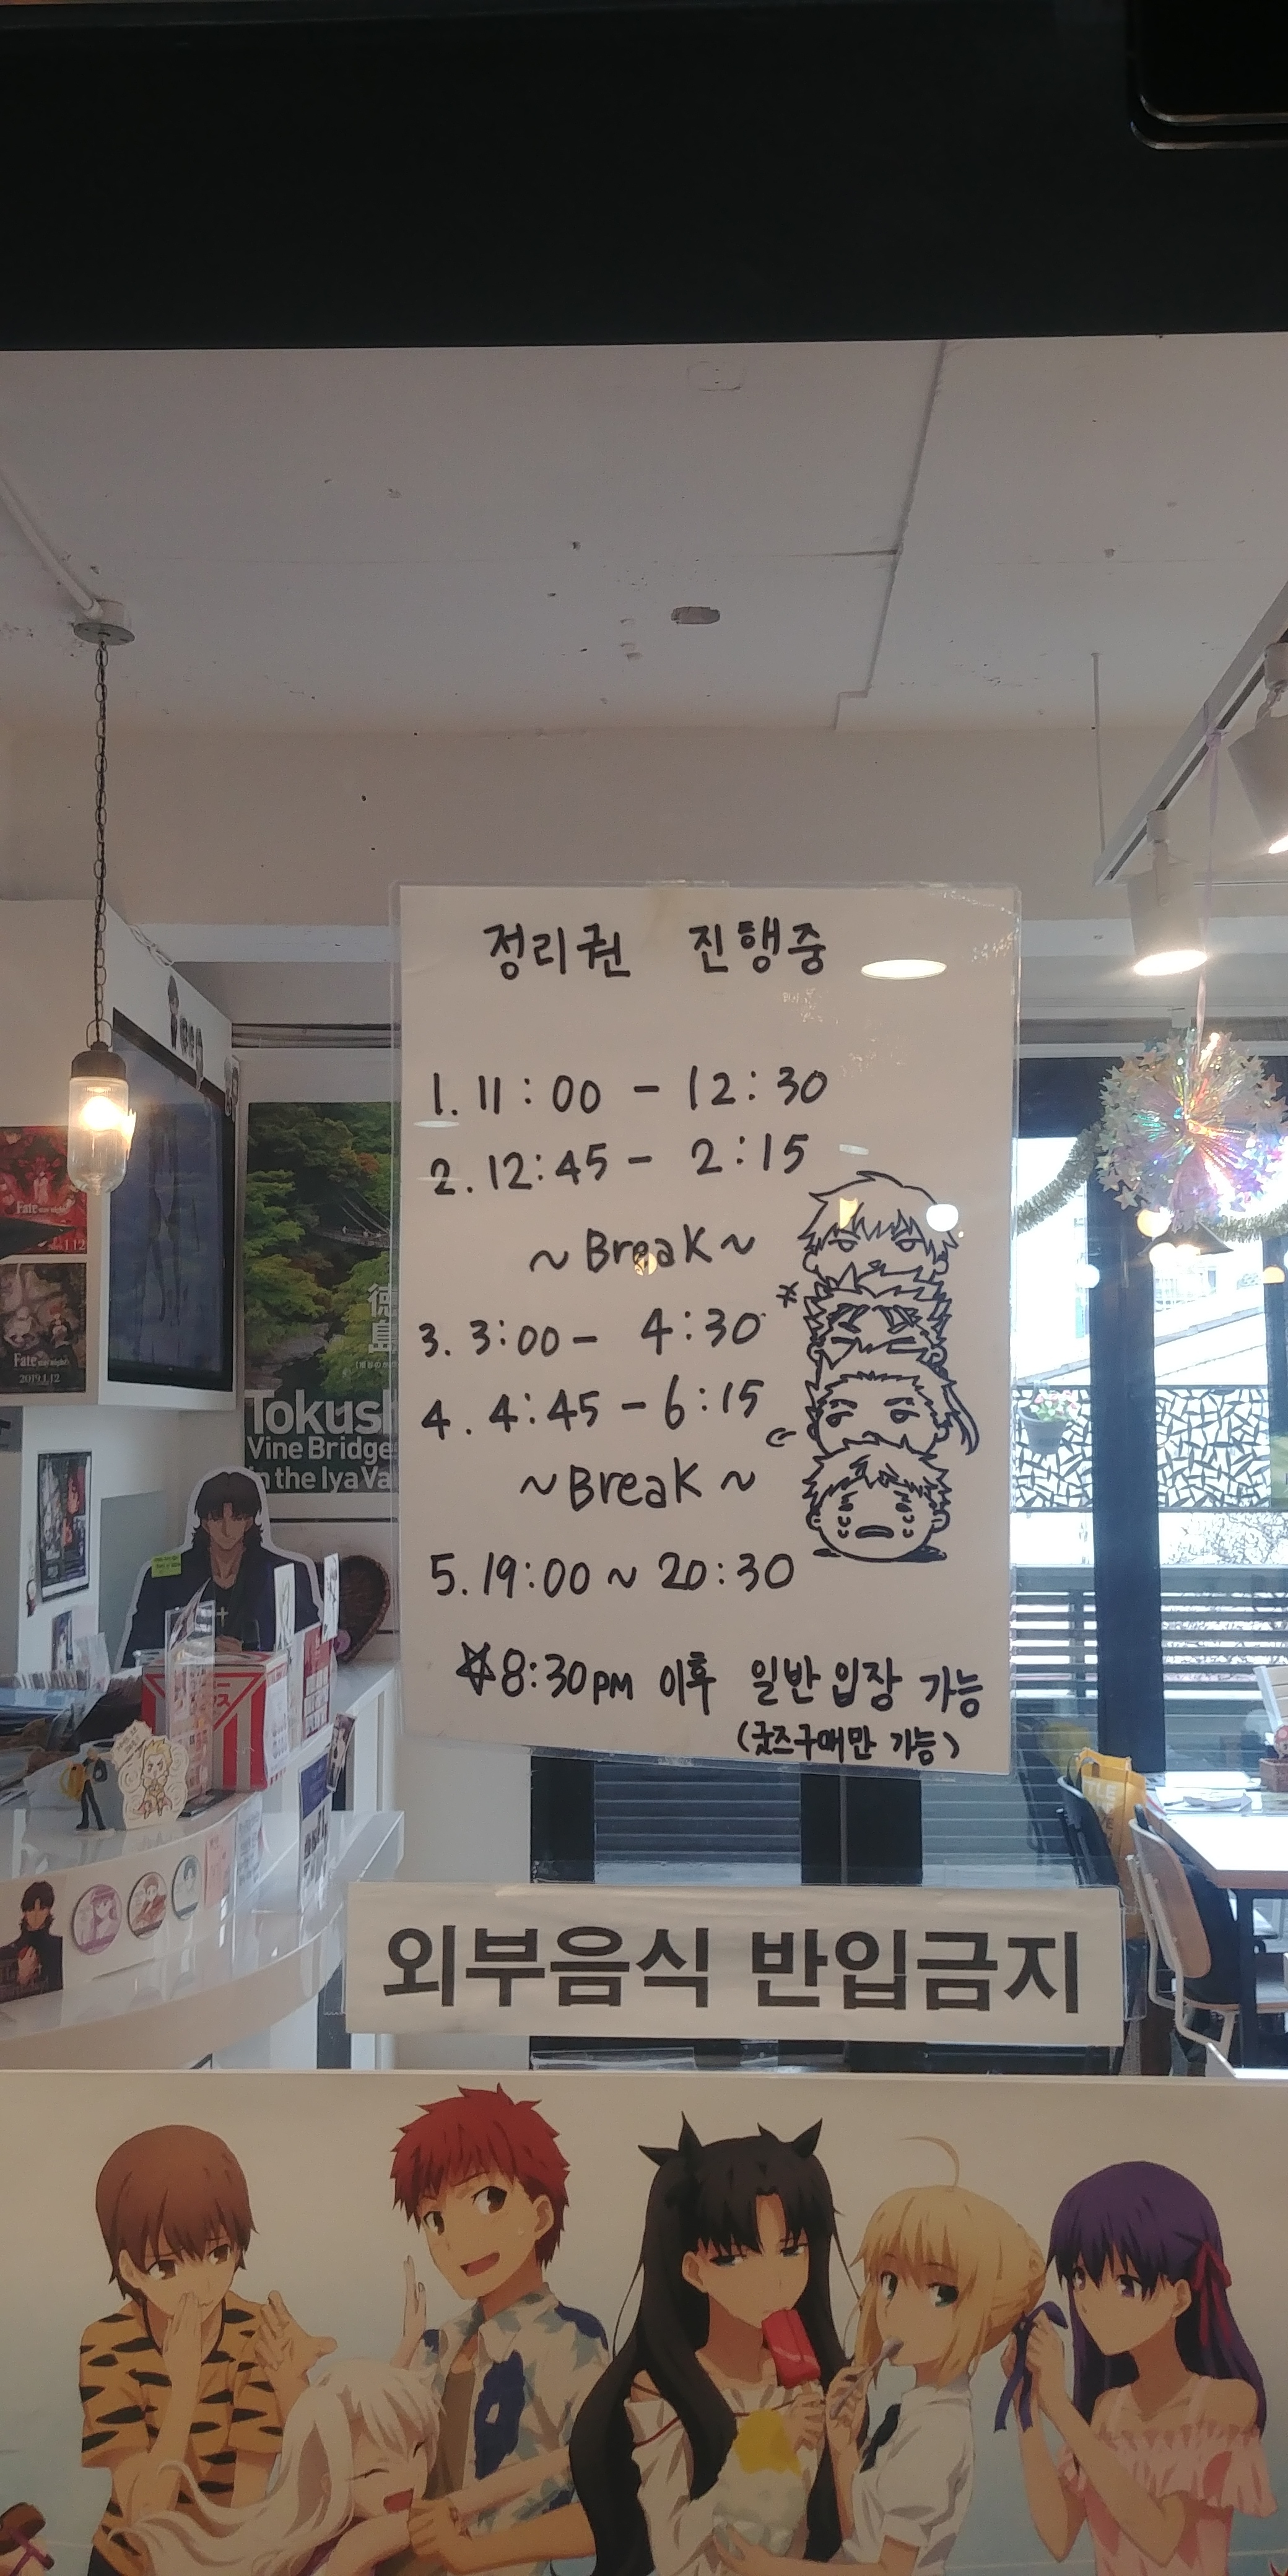 정리권 진행중
1. 11:00 - 12:30
2. 12:45 - 2:15
~ Break ~
3. 3:00 - 4:30
4. 4:45 - 6:15
~ Break ~
5. 19:00 ~ 20:30
☆8:30PM 이후 일반 입장 가능
(굿즈구매만 가능)
외부음식 반입금지
Fate
Fate
2019.1.12
徳島
Tokush
Vine Bridge
in the Iya Va